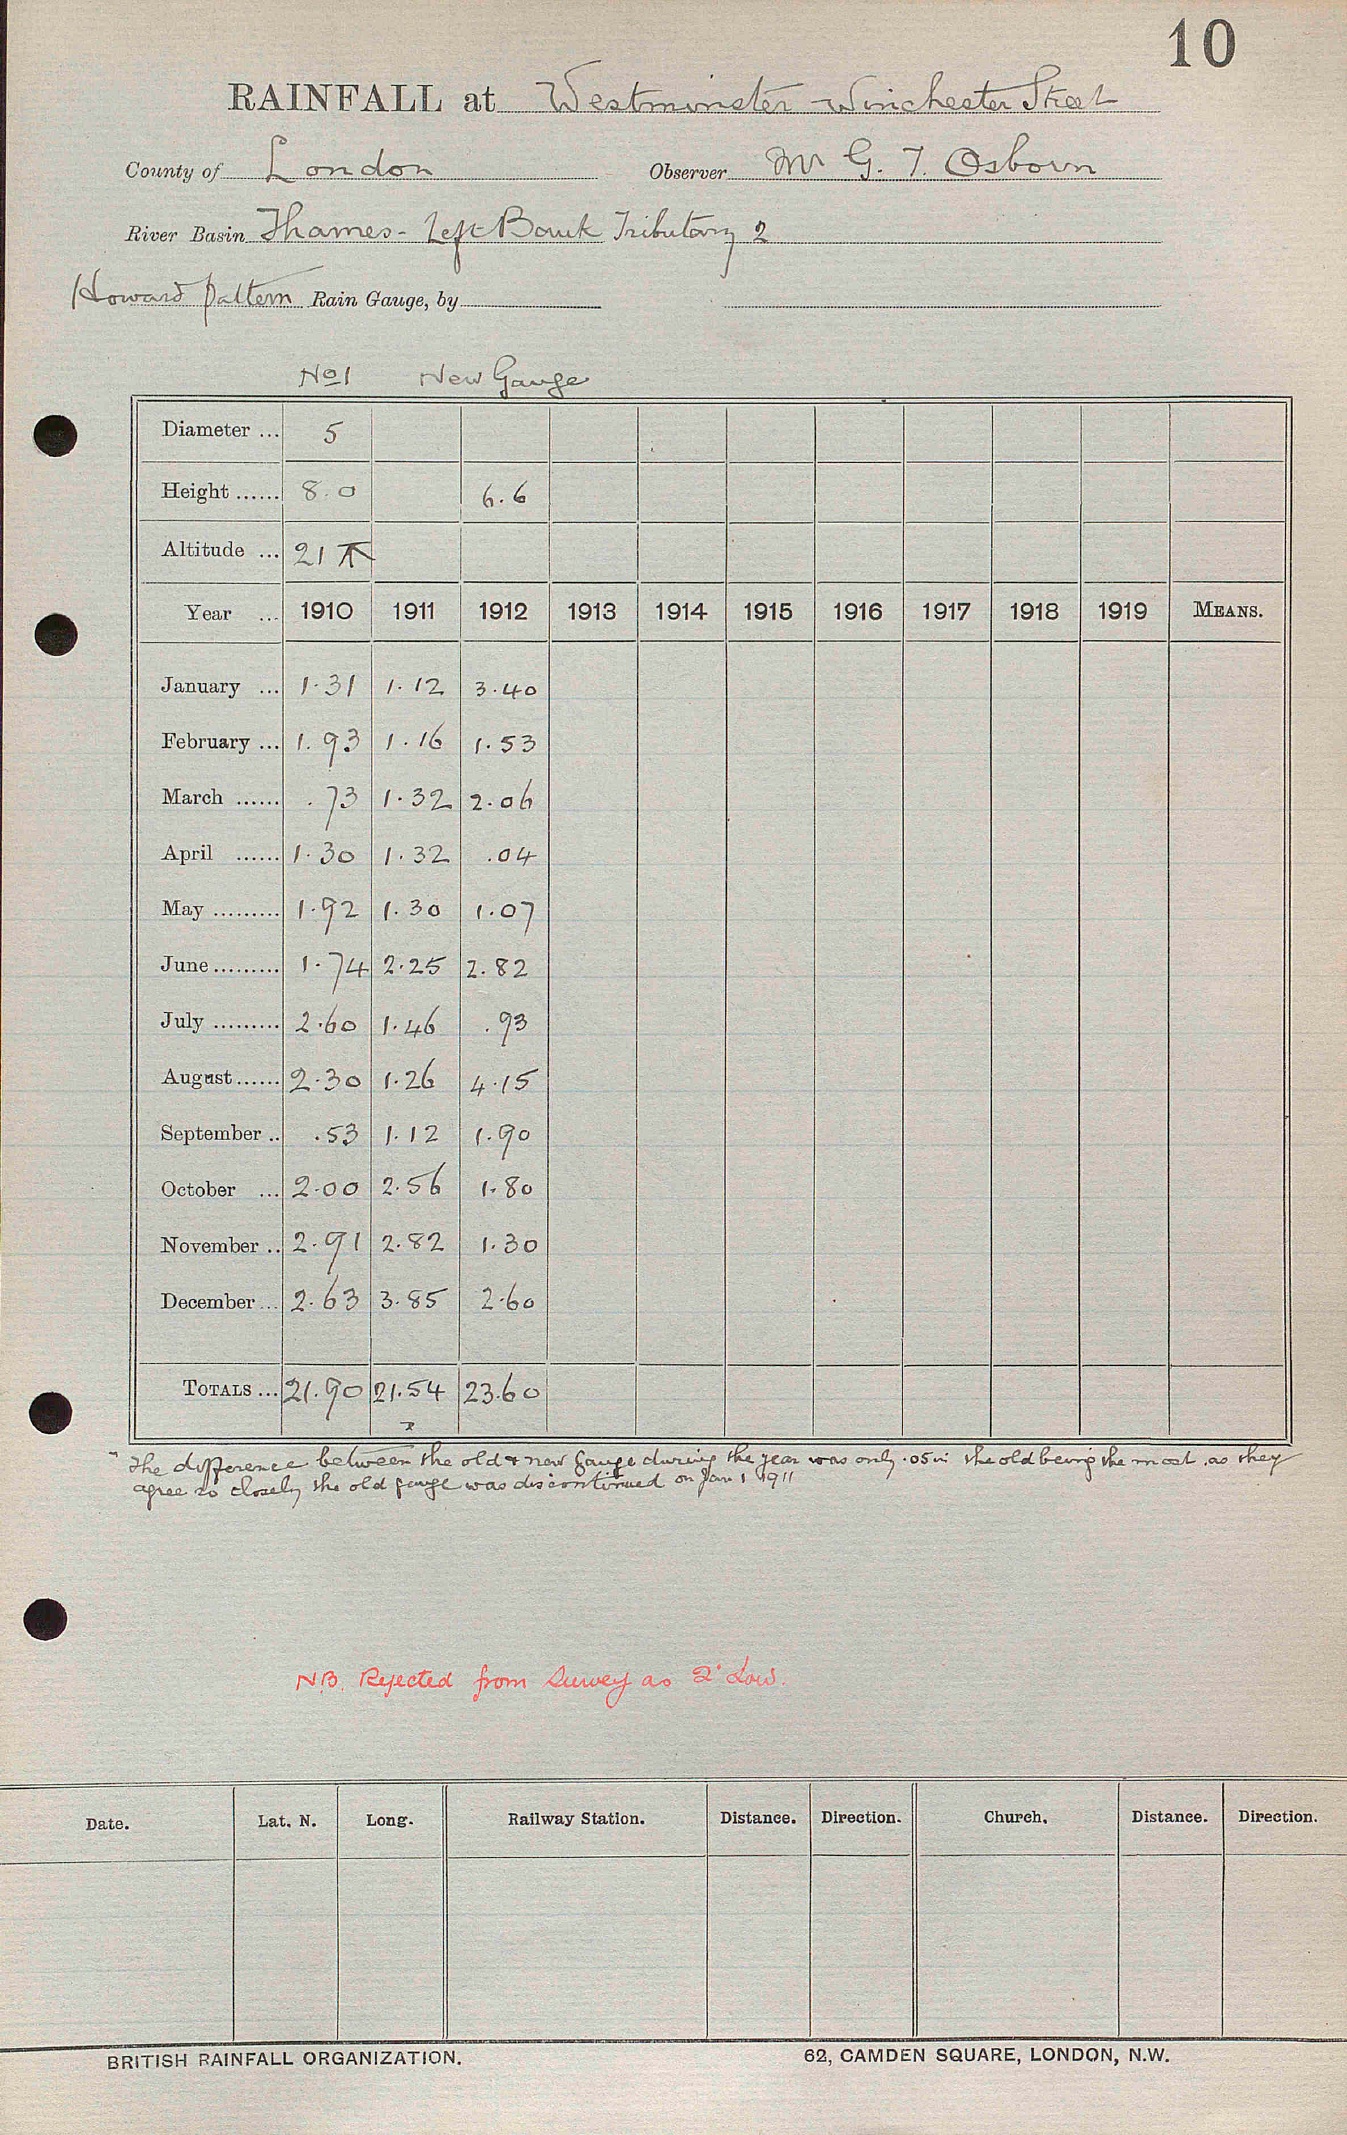 10
RAINFALL at Westminster - Winchester Street
County of London Observer Mr G. T. Osborn
River Basin Thames - Left Bank Tributary 2
Howard pattern Rain Gauge, by
No 1 New Gauge
Diameter ... 5
Height ...... 8.0 6.6
Altitude ... 21
Year ... 1910 1911 1912 1913 1914 1915 1916 1917 1918 1919 MEANS.
January ... 1.31 1.12 3.40
February ... 1.93 1.16 1.53
March ...... .73 1.32 2.06
April ...... 1.30 1.32 .04
May ......... 1.92 1.30 1.07
June ......... 1.74 2.25 2.82
July ......... 2.60 1.46 .93
August ...... 2.30 1.26 4.15
September .. .53 1.12 1.90
October ... 2.00 2.56 1.80
November .. 2.91 2.82 1.30
December ... 2.63 3.85 2.60
TOTALS ... 21.90 21.54 23.60
The difference between the old & new gauge during the year was only .05 in the old being the most as they
agree so closely the old gauge was discontinued on Jan 1 1911
N.B. Rejected from Survey as 2" Low.
Date. Lat. N. Long. Railway Station. Distance. Direction. Church. Distance. Direction.
BRITISH RAINFALL ORGANIZATION. 62, CAMDEN SQUARE, LONDON, N.W.